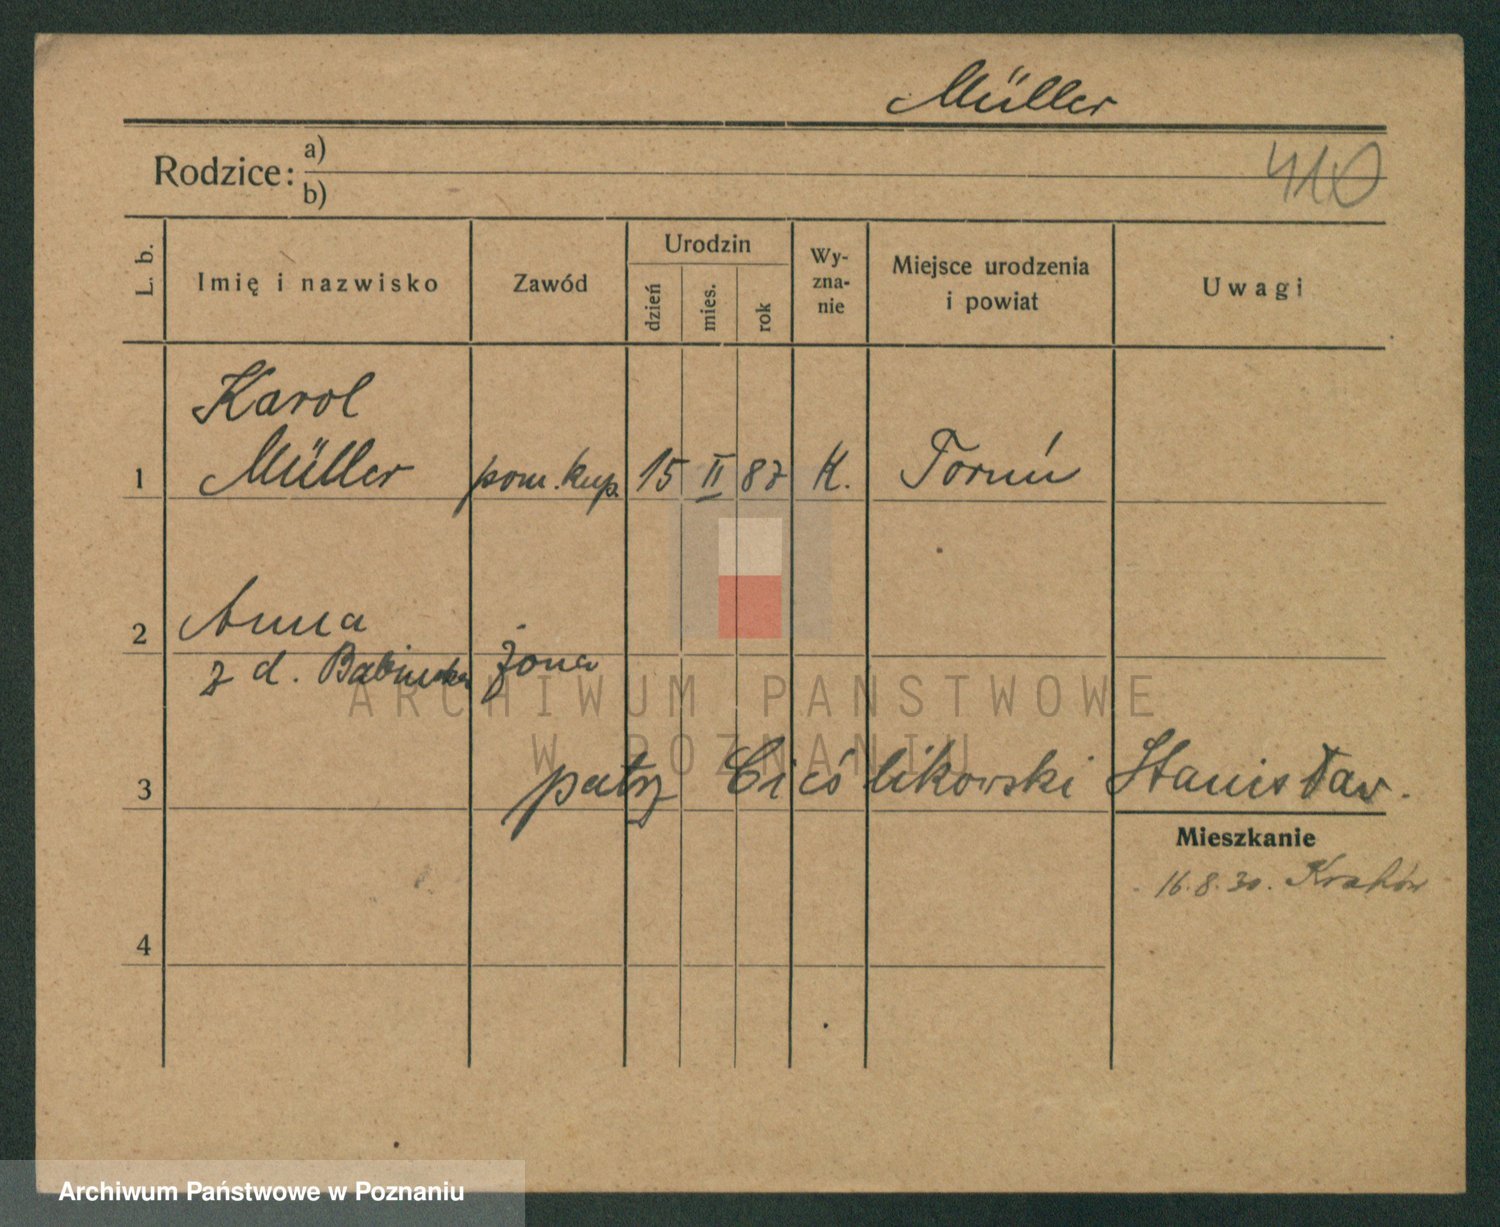 Müller
Rodzice: a)
410
b)
L. b.
Imię i nazwisko
Zawód
Urodzin
dzień
mies.
rok
Wy-
zna-
nie
Miejsce urodzenia
i powiat
Uwagi
Karol
1 Müller pom. kup. 15 II 87 K. Toruń
2 Anna
z d. Babińska żona
ARCHIWUM PAŃSTWOWE
W POZNANIU
3 patrz Cieślikowski Stanisław.
Mieszkanie
16.8.30. Kraków
4
Archiwum Państwowe w Poznaniu